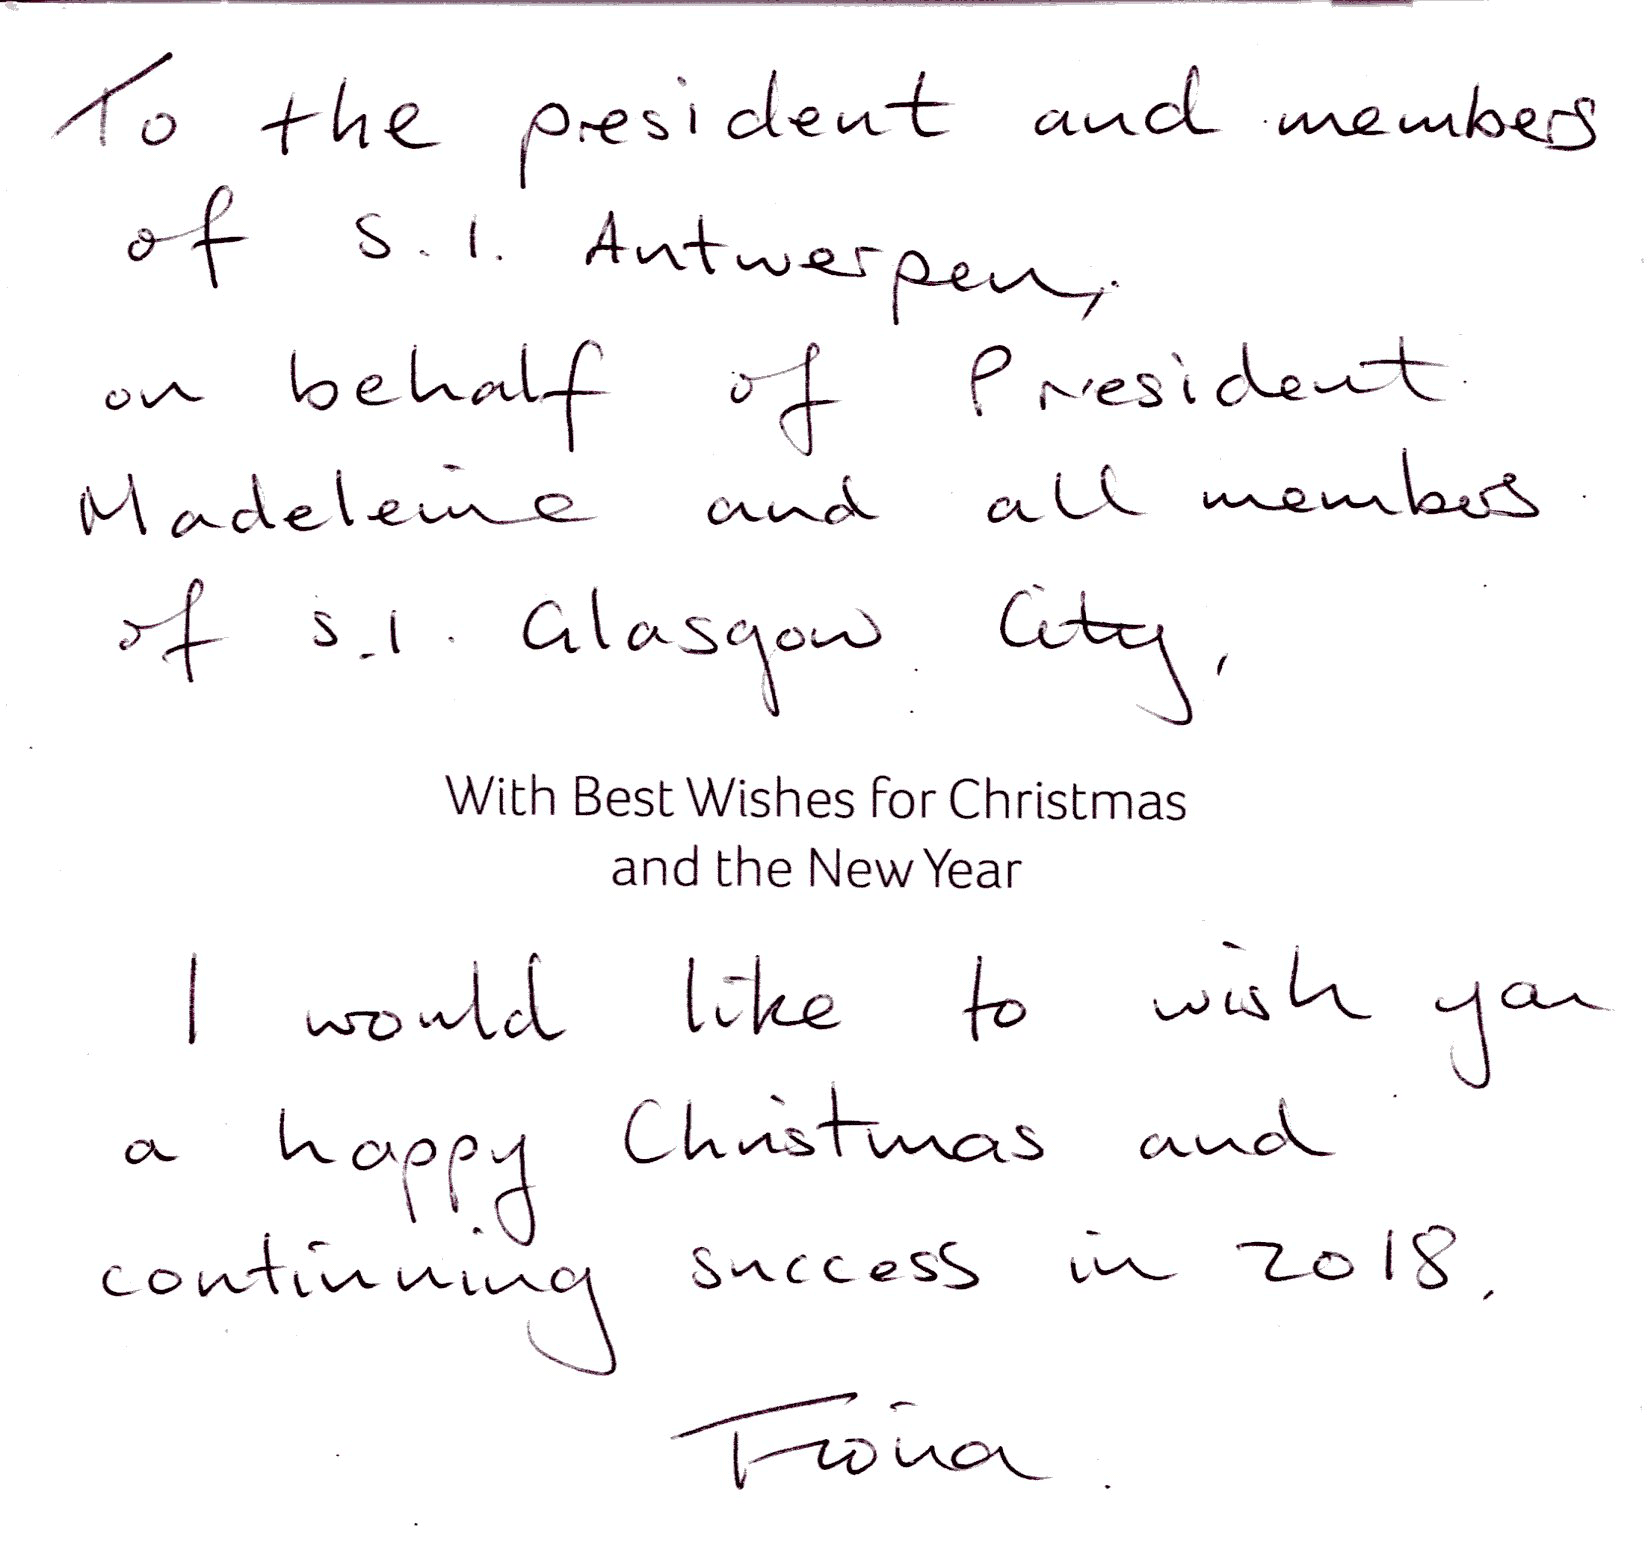 To the president and members
of S.I. Antwerpen,
on behalf of President
Madeleine and all members
of S.I. Glasgow City,
With Best Wishes for Christmas
and the New Year
I would like to wish you
a happy Christmas and
continuing success in 2018.
Fiona.